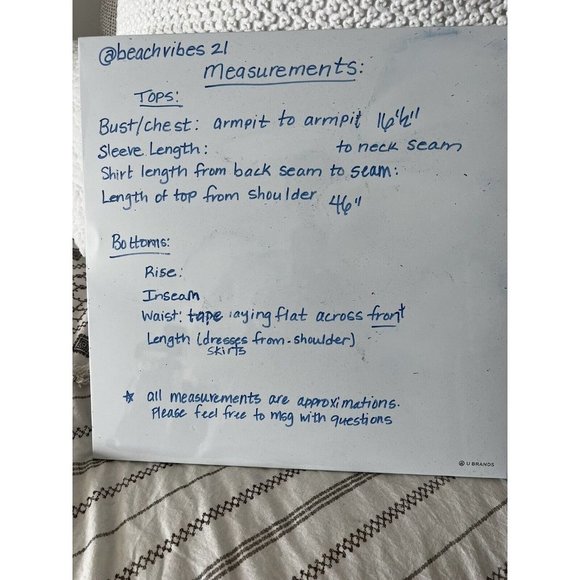 @beachvibes 21
Measurements:
TOPS:
Bust/chest: armpit to armpit 16½"
Sleeve Length: to neck seam
Shirt length from back seam to seam:
Length of top from shoulder 46"
Bottoms:
Rise:
Inseam
Waist: tape laying flat across front
Length (dresses from shoulder)
skirts
* all measurements are approximations.
Please feel free to msg with questions
U BRANDS